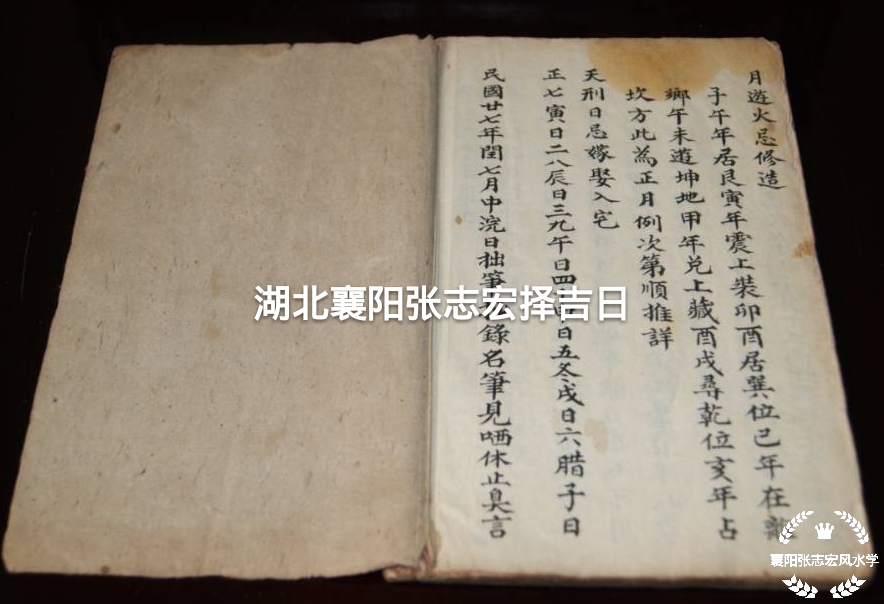 月遊火忌修造
子午年居艮寅年震上裝卯酉居巽位巳年在
鄉午未遊坤地甲年兌上藏酉戌尋乾位亥年占
坎方此為正月例次第順推詳
天刑日忌嫁娶入宅
正七寅日二八辰日三九午日四日五冬戌日六腊子日
民國廿七年閏七月中浣日拙筆錄名筆見哂休止臭言
湖北襄阳张志宏择吉日
襄阳张志宏风水学